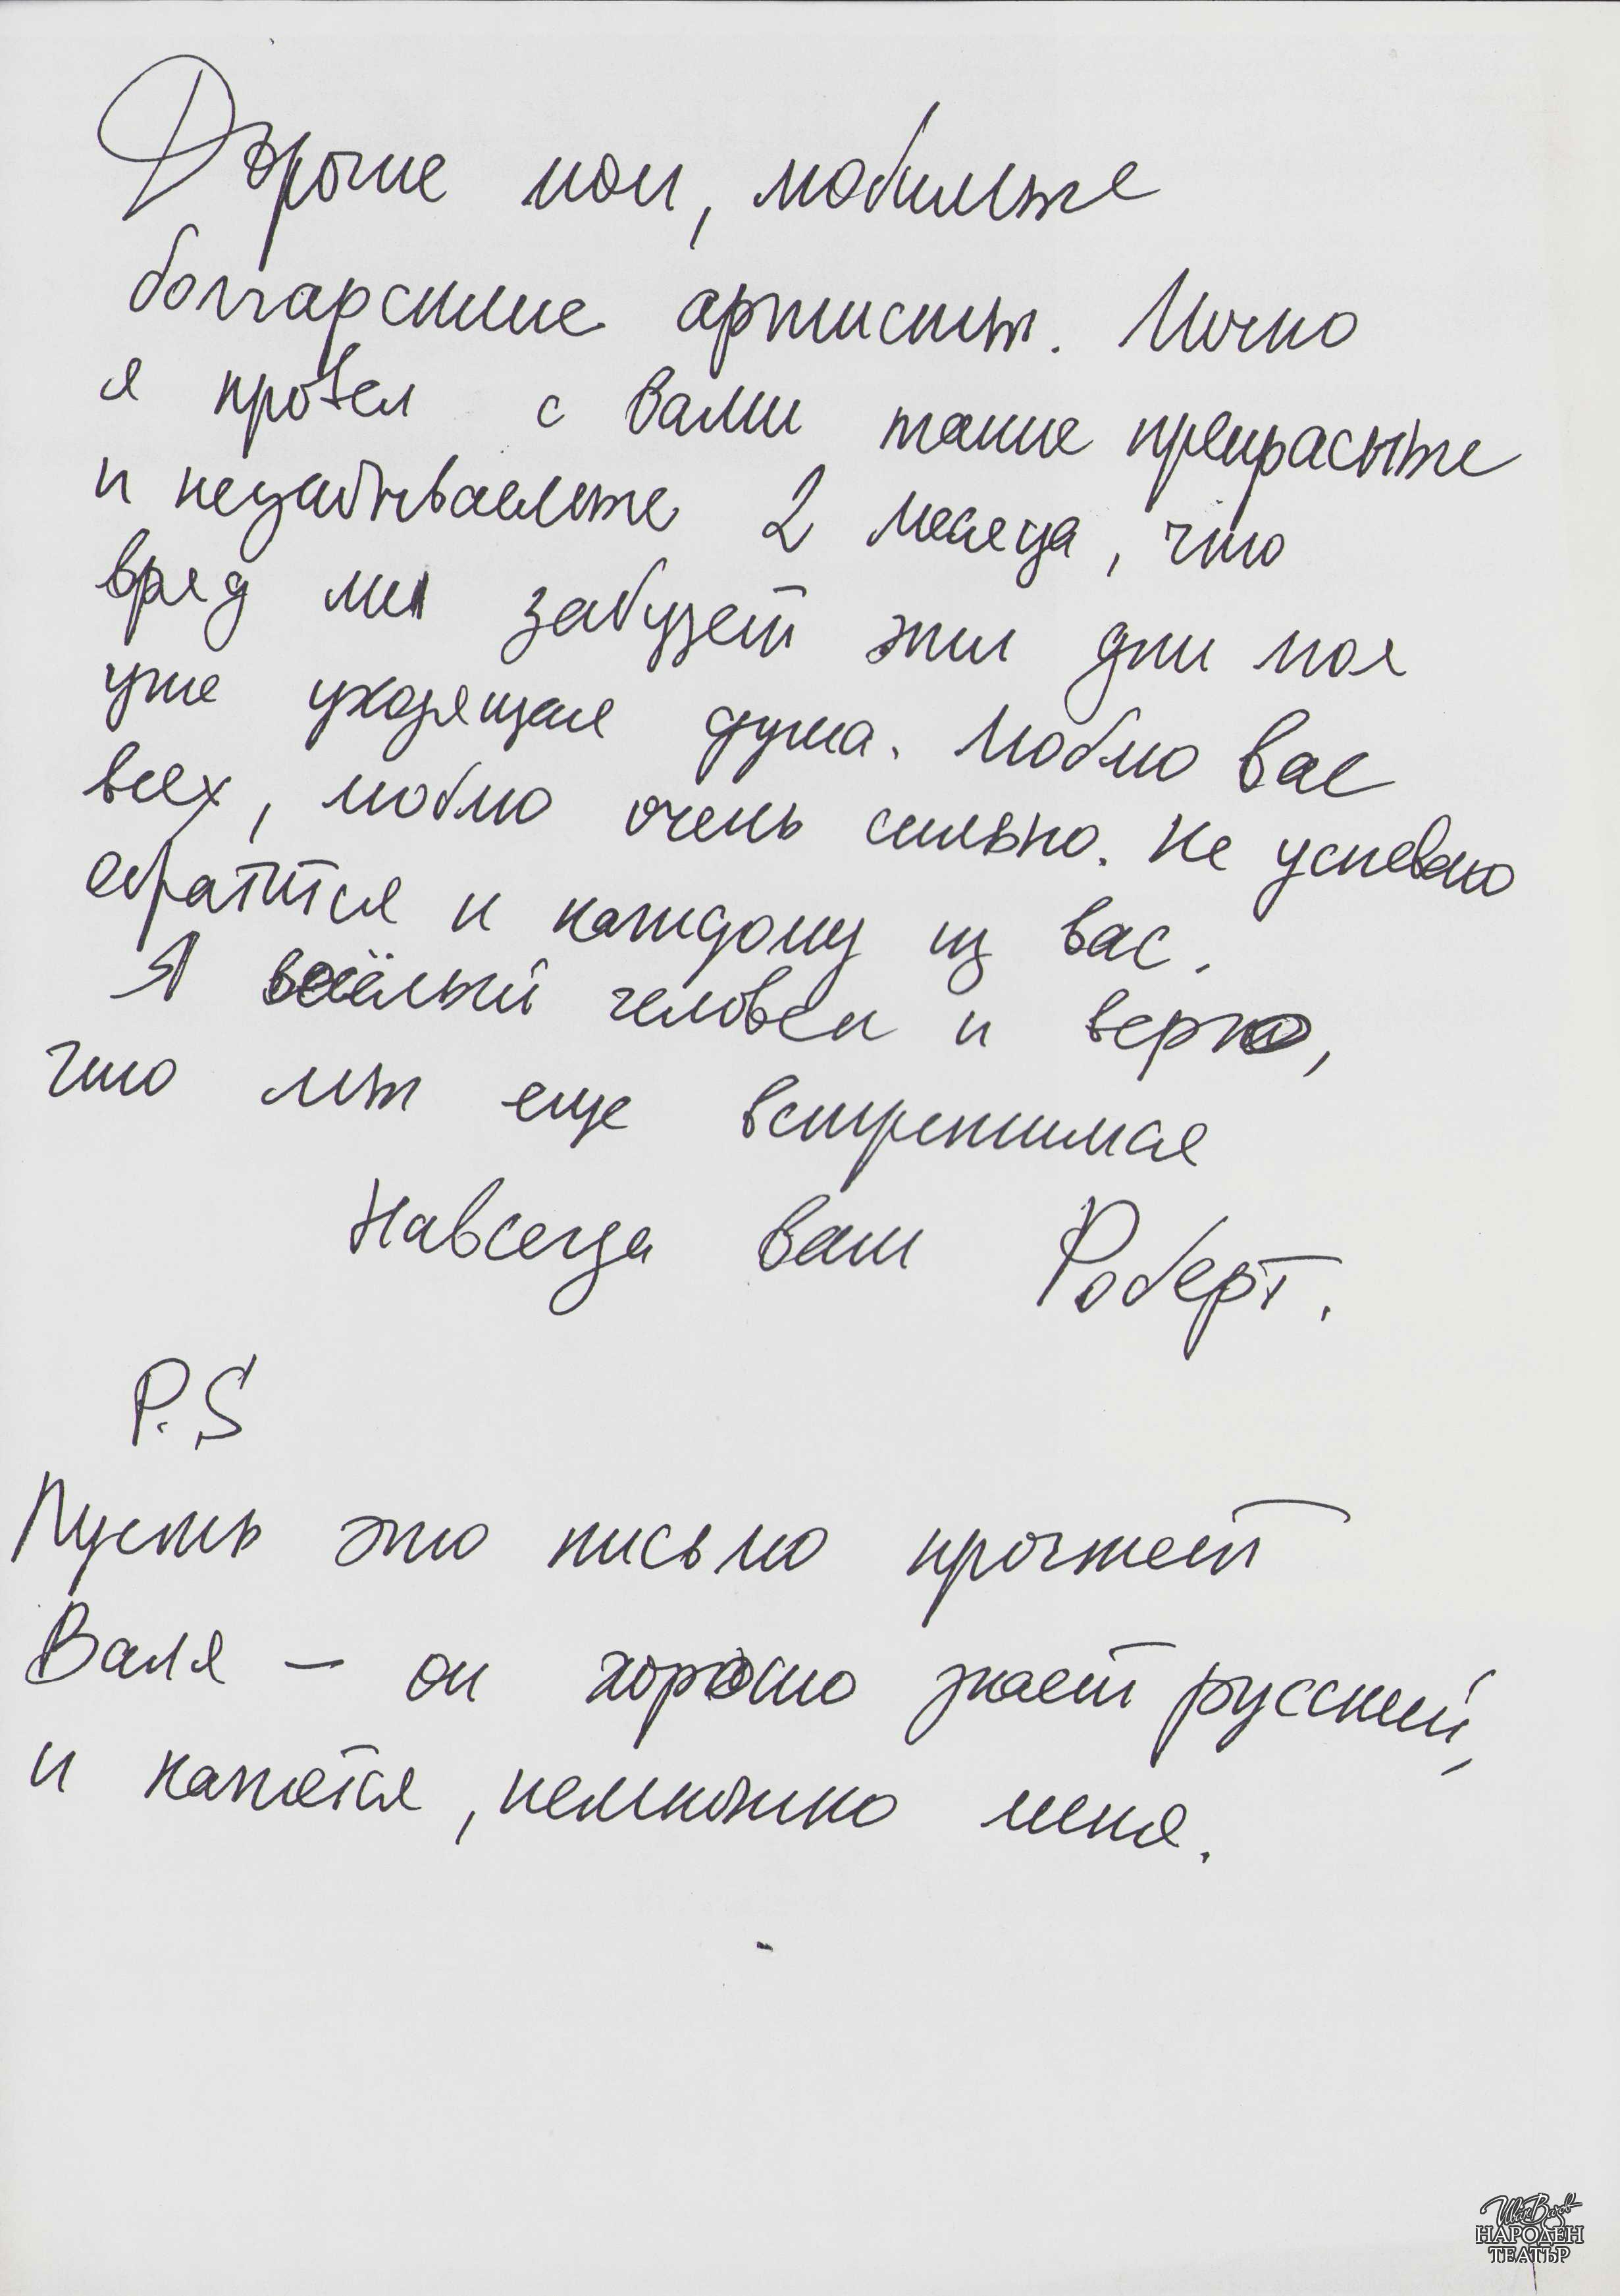 Дорогие мои, любимые
болгарские артисты. Лично
я провел с вами такие прекрасные
и незабываемые 2 месяца, что
вряд ли забудет эти дни моя
уже уходящая душа. Люблю вас
всех, люблю очень сильно. Не успеваю
обратится к каждому из вас.
Я весёлый человек и верю,
что мы еще встретимся
Навсегда ваш Роберт.
P.S
Пусть это письмо прочтет
Валя – он хорошо знает русский,
и кажется, немножко меня.
Иван Вазов
НАРОДЕН
ТЕАТЪР